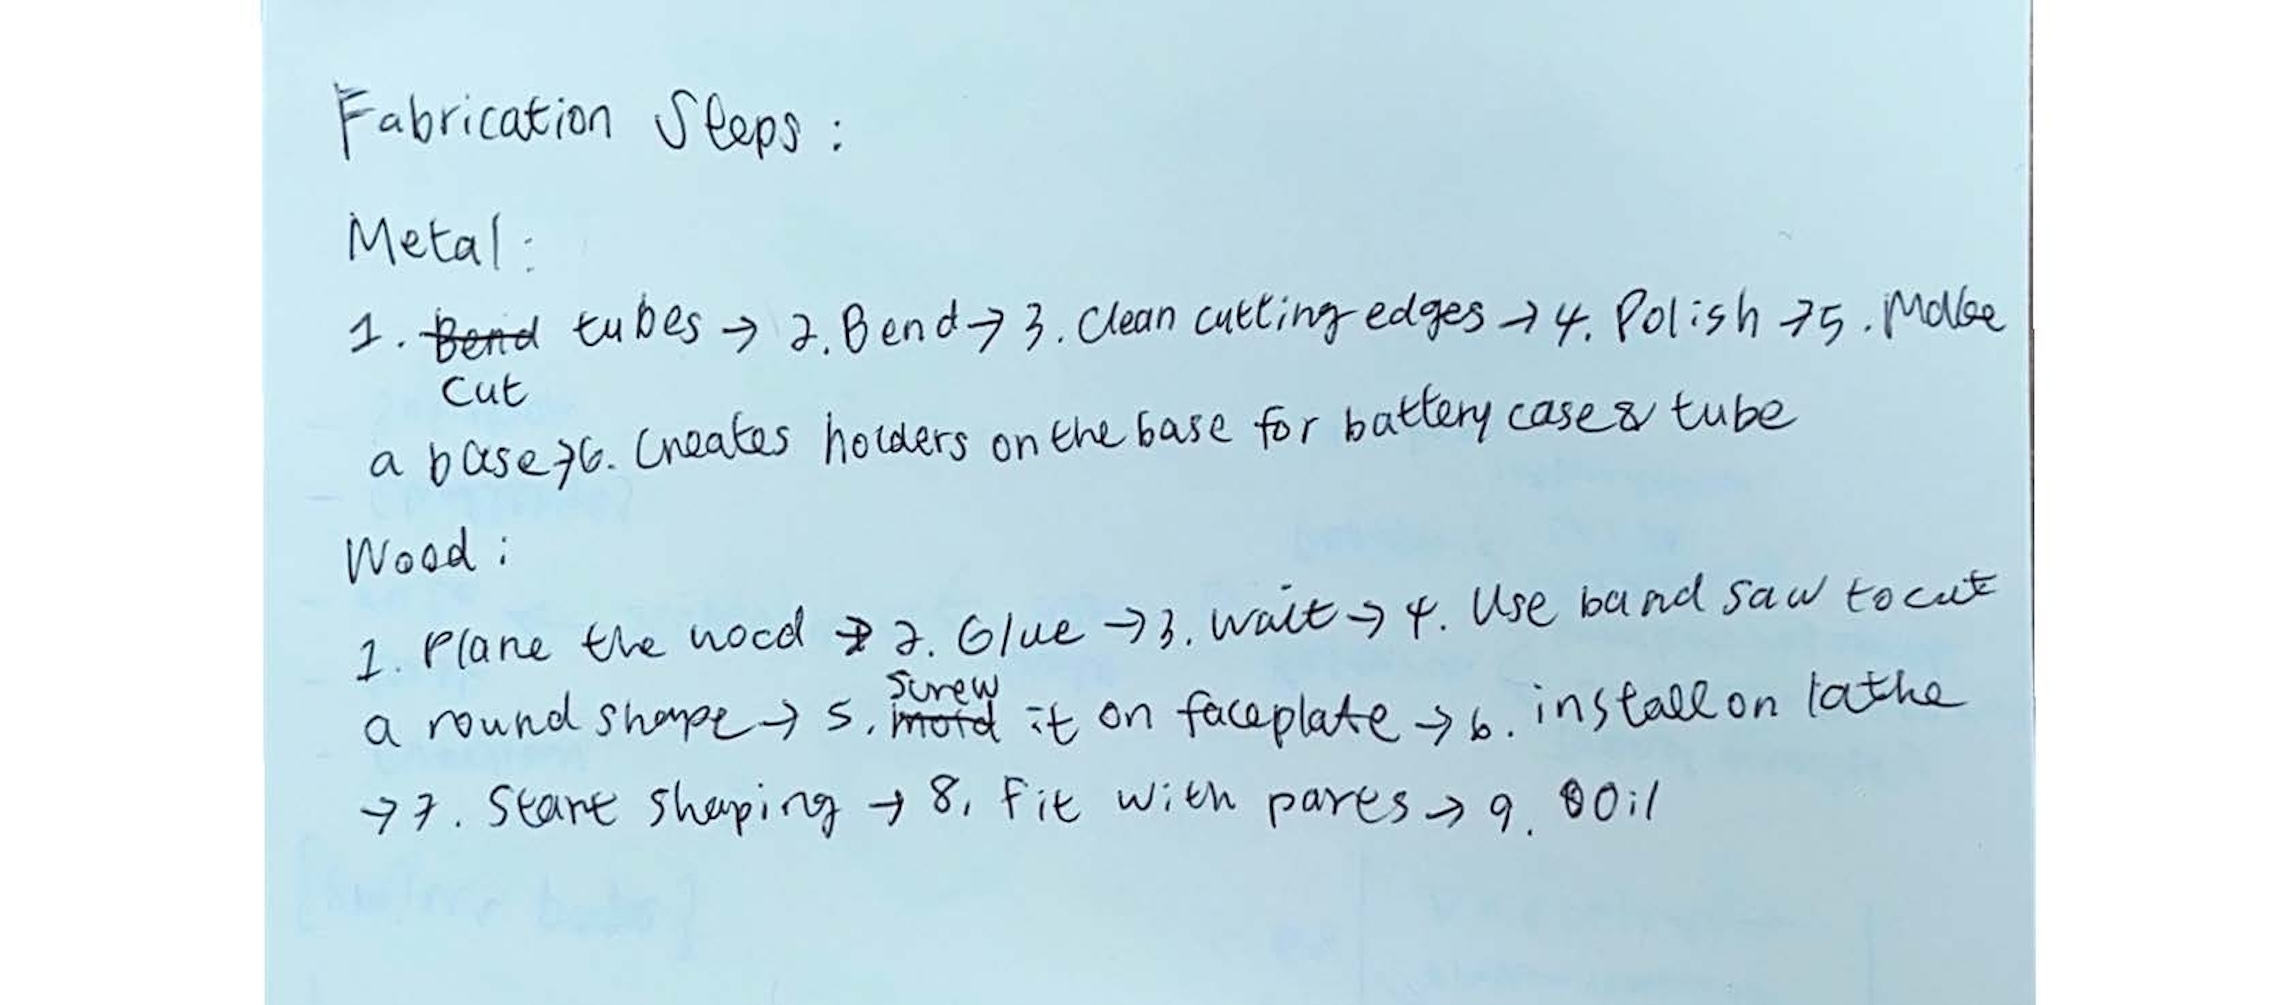 Fabrication Steps:
Metal:
1. Bend tubes → 2. Bend → 3. Clean cutting edges → 4. Polish → 5. Make
Cut
a base → 6. Creates holders on the base for battery case & tube
Wood:
1. Plane the wood → 2. Glue → 3. Wait → 4. Use band saw to cut
screw
a round shape → 5. mold it on faceplate → 6. install on lathe
→ 7. Start shaping → 8. Fit with parts → 9. Oil